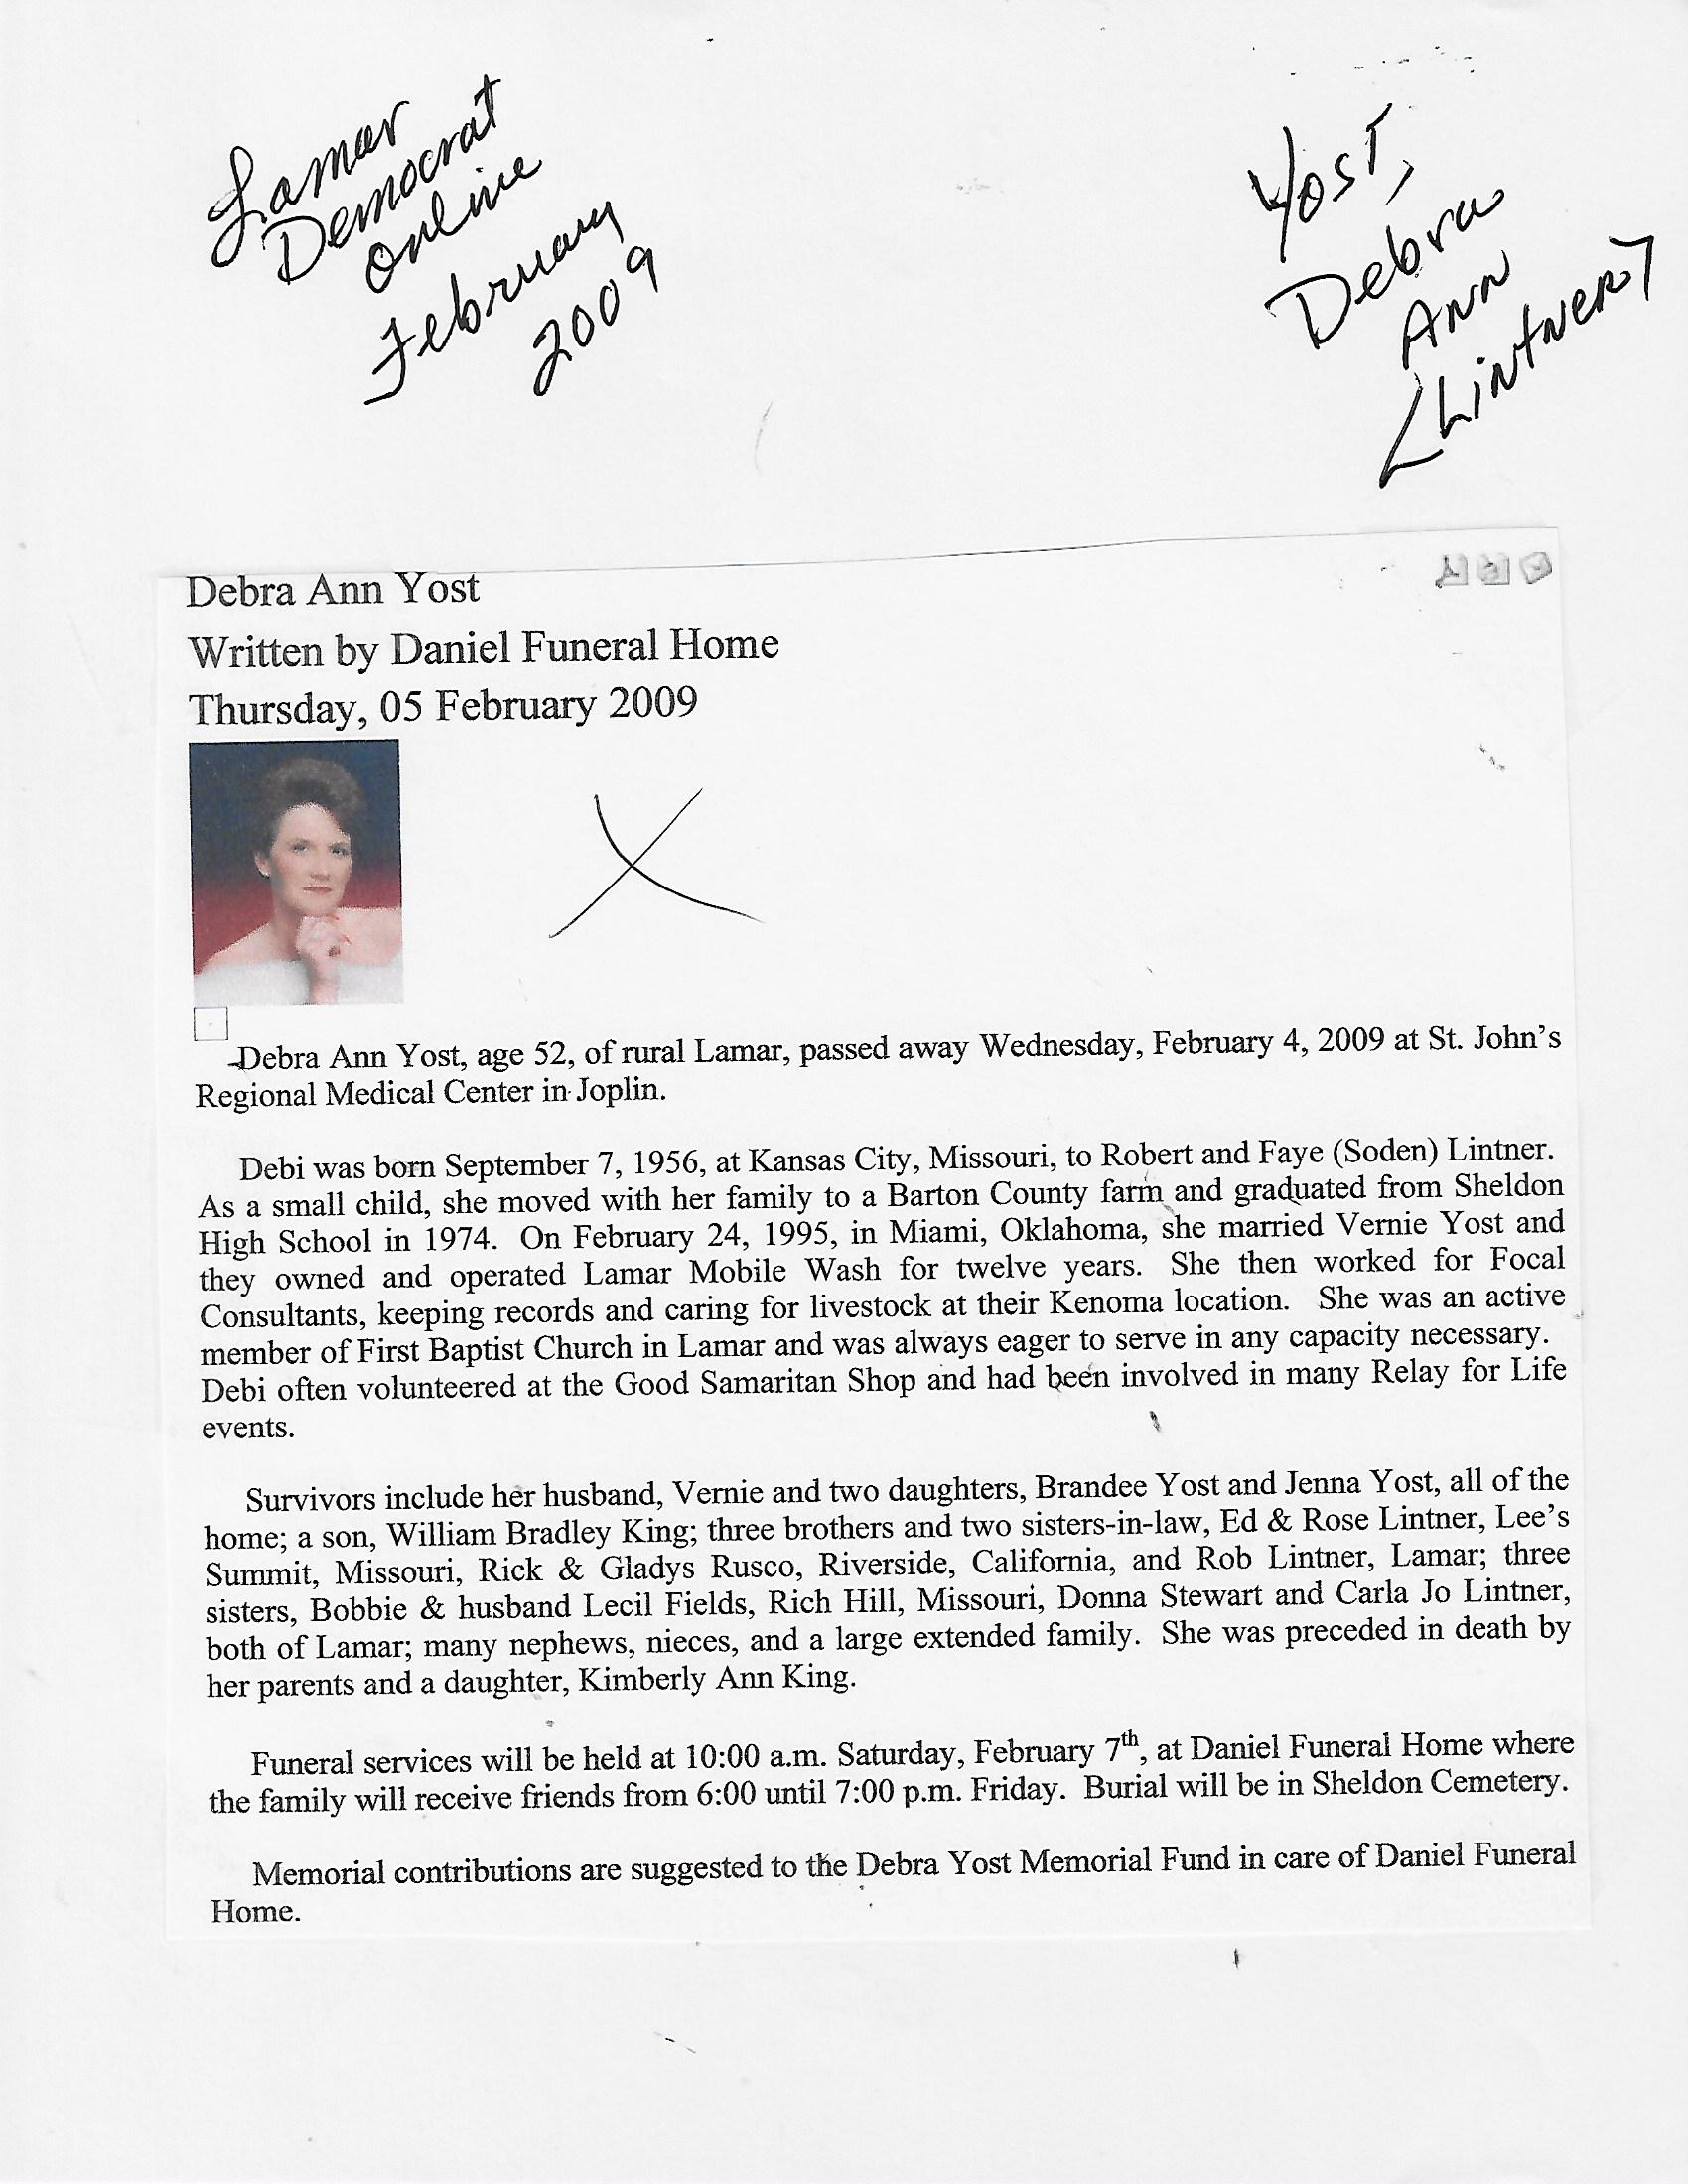 Lamar
Democrat
Online
February
2009
Yost,
Debra
Ann
<Lintner>
Debra Ann Yost
Written by Daniel Funeral Home
Thursday, 05 February 2009
Debra Ann Yost, age 52, of rural Lamar, passed away Wednesday, February 4, 2009 at St. John’s
Regional Medical Center in Joplin.
Debi was born September 7, 1956, at Kansas City, Missouri, to Robert and Faye (Soden) Lintner.
As a small child, she moved with her family to a Barton County farm and graduated from Sheldon
High School in 1974. On February 24, 1995, in Miami, Oklahoma, she married Vernie Yost and
they owned and operated Lamar Mobile Wash for twelve years. She then worked for Focal
Consultants, keeping records and caring for livestock at their Kenoma location. She was an active
member of First Baptist Church in Lamar and was always eager to serve in any capacity necessary.
Debi often volunteered at the Good Samaritan Shop and had been involved in many Relay for Life
events.
Survivors include her husband, Vernie and two daughters, Brandee Yost and Jenna Yost, all of the
home; a son, William Bradley King; three brothers and two sisters-in-law, Ed & Rose Lintner, Lee’s
Summit, Missouri, Rick & Gladys Rusco, Riverside, California, and Rob Lintner, Lamar; three
sisters, Bobbie & husband Lecil Fields, Rich Hill, Missouri, Donna Stewart and Carla Jo Lintner,
both of Lamar; many nephews, nieces, and a large extended family. She was preceded in death by
her parents and a daughter, Kimberly Ann King.
Funeral services will be held at 10:00 a.m. Saturday, February 7th, at Daniel Funeral Home where
the family will receive friends from 6:00 until 7:00 p.m. Friday. Burial will be in Sheldon Cemetery.
Memorial contributions are suggested to the Debra Yost Memorial Fund in care of Daniel Funeral
Home.